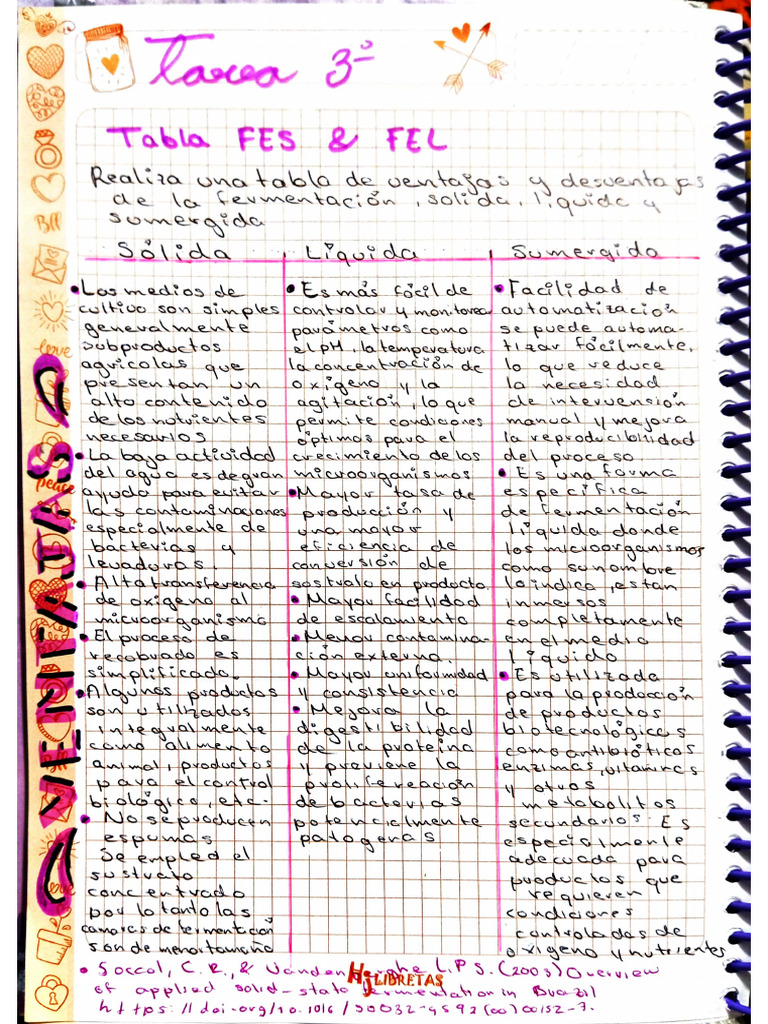 Tarea 3º
Tabla FES & FEL
Realiza una tabla de ventajas y desventajas
de la fermentación, solida, liquida y
sumergida
Sólida
Los medios de
cultivo son simples
generalmente
subproductos
agricolas que
presentan un
alto contenido
de los nutrientes
necesarios
La baja actividad
del agua es de gran
ayuda para evitar
las contaminaciones
especialmente de
bacterias y
levaduras.
Alta transferencia
de oxigeno al
microorganismo
El proceso de
recobrado es
simplificado.
Algunos productos
son utilizados
integralmente
como alimento
animal, productos
para el control
biológico, etc.
No se producen
espumas
Se emplea el
sustrato
concentrado
por lo tanto las
camaras de fermentación
son de menor tamaño
Líquida
Es más fácil de
controlar y monitorea
parámetros como
el pH, la temperatura
la concentración de
oxigeno y la
agitación, lo que
permite condiciones
óptimas para el
crecimiento de los
microorganismos
Mayor tasa de
producción y
una mayor
eficiencia de
conversión de
sustrato en producto.
Mayor facilidad
de escalamiento
Menor contamina-
ción externa.
Mayor uniformidad
y consistencia
Mejora la
digestibilidad
de la proteína
y previene la
proliferación
de bacterias
potencialmente
patogenas
Sumergido
Facilidad de
automatización
se puede automa-
tizar fácilmente,
lo que reduce
la necesidad
de intervensión
manual y mejora
la reproducibilidad
del proceso
Es una forma
especifica
de fermentación
liquida donde
los microorganismos
como su nombre
lo indica, estan
inmersos
completamente
en el medio
líquido
Es utilizada
para la producción
de productos
biotecnológicos
como antibióticos
enzimas, vitaminas
y otros
metabolitos
secundarios. Es
especialmente
adecuada para
productos que
requieren
condiciones
controladas de
oxigeno y nutrientes
VENTAJAS
Soccol, C. R., & Vandenberghe L.P.S. (2003) Overview
of applied solid-state fermentation in Brazil
https://doi.org/10.1016/S0032-9592(00)00152-7.
HJ LIBRETAS
love
peace